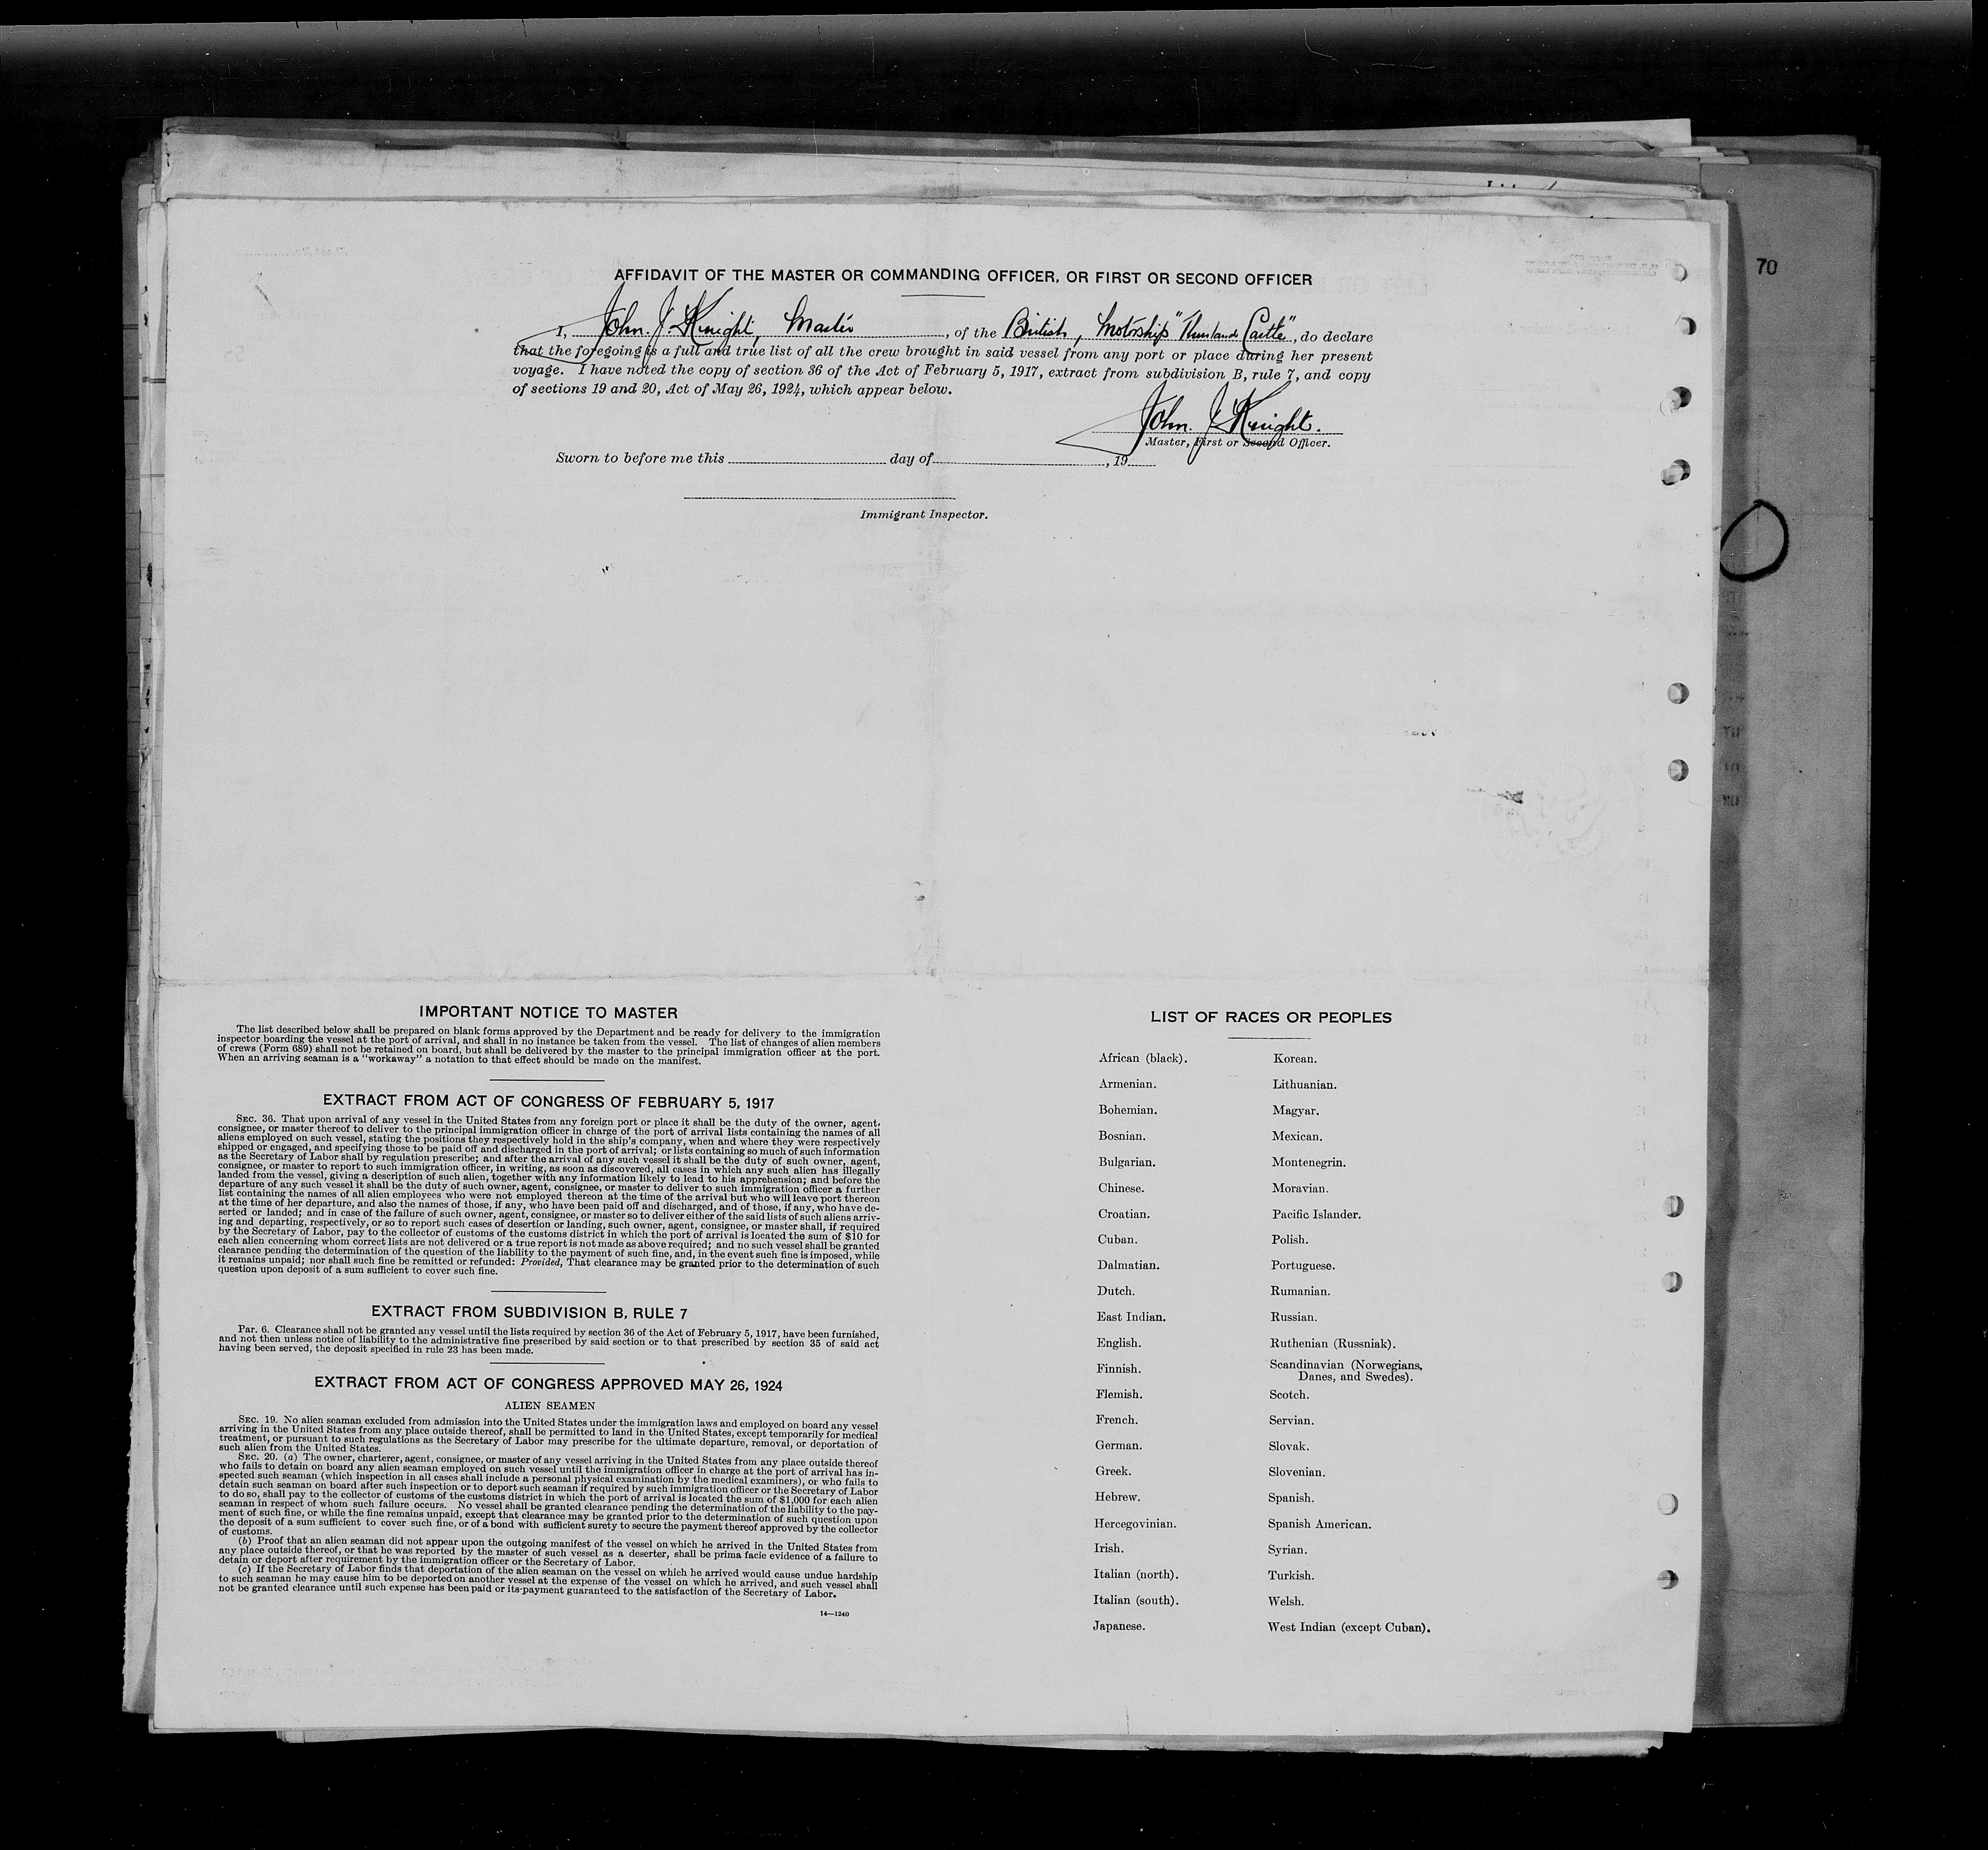 70
AFFIDAVIT OF THE MASTER OR COMMANDING OFFICER, OR FIRST OR SECOND OFFICER
I, John. J. Knight, Master, of the British, Motorship "Thurland Castle", do declare
that the foregoing is a full and true list of all the crew brought in said vessel from any port or place during her present
voyage. I have noted the copy of section 36 of the Act of February 5, 1917, extract from subdivision B, rule 7, and copy
of sections 19 and 20, Act of May 26, 1924, which appear below.
John. J. Knight.
Master, First or Second Officer.
Sworn to before me this day of , 19
Immigrant Inspector.
IMPORTANT NOTICE TO MASTER
The list described below shall be prepared on blank forms approved by the Department and be ready for delivery to the immigration
inspector boarding the vessel at the port of arrival, and shall in no instance be taken from the vessel. The list of changes of alien members
of crews (Form 689) shall not be retained on board, but shall be delivered by the master to the principal immigration officer at the port.
When an arriving seaman is a "workaway" a notation to that effect should be made on the manifest.
EXTRACT FROM ACT OF CONGRESS OF FEBRUARY 5, 1917
SEC. 36. That upon arrival of any vessel in the United States from any foreign port or place it shall be the duty of the owner, agent,
consignee, or master thereof to deliver to the principal immigration officer in charge of the port of arrival lists containing the names of all
aliens employed on such vessel, stating the positions they respectively hold in the ship's company, when and where they were respectively
shipped or engaged, and specifying those to be paid off and discharged in the port of arrival; or lists containing so much of such information
as the Secretary of Labor shall by regulation prescribe; and after the arrival of any such vessel it shall be the duty of such owner, agent,
consignee, or master to report to such immigration officer, in writing, as soon as discovered, all cases in which any such alien has illegally
landed from the vessel, giving a description of such alien, together with any information likely to lead to his apprehension; and before the
departure of any such vessel it shall be the duty of such owner, agent, consignee, or master to deliver to such immigration officer a further
list containing the names of all alien employees who were not employed thereon at the time of the arrival but who will leave port thereon
at the time of her departure, and also the names of those, if any, who have been paid off and discharged, and of those, if any, who have de-
serted or landed; and in case of the failure of such owner, agent, consignee, or master so to deliver either of the said lists of such aliens arriv-
ing and departing, respectively, or so to report such cases of desertion or landing, such owner, agent, consignee, or master shall, if required
by the Secretary of Labor, pay to the collector of customs of the customs district in which the port of arrival is located the sum of $10 for
each alien concerning whom correct lists are not delivered or a true report is not made as above required; and no such vessel shall be granted
clearance pending the determination of the question of the liability to the payment of such fine, and, in the event such fine is imposed, while
it remains unpaid; nor shall such fine be remitted or refunded: Provided, That clearance may be granted prior to the determination of such
question upon deposit of a sum sufficient to cover such fine.
EXTRACT FROM SUBDIVISION B, RULE 7
Par. 6. Clearance shall not be granted any vessel until the lists required by section 36 of the Act of February 5, 1917, have been furnished,
and not then unless notice of liability to the administrative fine prescribed by said section or to that prescribed by section 35 of said act
having been served, the deposit specified in rule 23 has been made.
EXTRACT FROM ACT OF CONGRESS APPROVED MAY 26, 1924
ALIEN SEAMEN
SEC. 19. No alien seaman excluded from admission into the United States under the immigration laws and employed on board any vessel
arriving in the United States from any place outside thereof, shall be permitted to land in the United States, except temporarily for medical
treatment, or pursuant to such regulations as the Secretary of Labor may prescribe for the ultimate departure, removal, or deportation of
such alien from the United States.
SEC. 20. (a) The owner, charterer, agent, consignee, or master of any vessel arriving in the United States from any place outside thereof
who fails to detain on board any alien seaman employed on such vessel until the immigration officer in charge at the port of arrival has in-
spected such seaman (which inspection in all cases shall include a personal physical examination by the medical examiners), or who fails to
detain such seaman on board after such inspection or to deport such seaman if required by such immigration officer or the Secretary of Labor
to do so, shall pay to the collector of customs of the customs district in which the port of arrival is located the sum of $1,000 for each alien
seaman in respect of whom such failure occurs. No vessel shall be granted clearance pending the determination of the liability to the pay-
ment of such fine, or while the fine remains unpaid, except that clearance may be granted prior to the determination of such question upon
the deposit of a sum sufficient to cover such fine, or of a bond with sufficient surety to secure the payment thereof approved by the collector
of customs.
(b) Proof that an alien seaman did not appear upon the outgoing manifest of the vessel on which he arrived in the United States from
any place outside thereof, or that he was reported by the master of such vessel as a deserter, shall be prima facie evidence of a failure to
detain or deport after requirement by the immigration officer or the Secretary of Labor.
(c) If the Secretary of Labor finds that deportation of the alien seaman on the vessel on which he arrived would cause undue hardship
to such seaman he may cause him to be deported on another vessel at the expense of the vessel on which he arrived, and such vessel shall
not be granted clearance until such expense has been paid or its payment guaranteed to the satisfaction of the Secretary of Labor.
14—1240
LIST OF RACES OR PEOPLES
African (black).
Armenian.
Bohemian.
Bosnian.
Bulgarian.
Chinese.
Croatian.
Cuban.
Dalmatian.
Dutch.
East Indian.
English.
Finnish.
Flemish.
French.
German.
Greek.
Hebrew.
Hercegovinian.
Irish.
Italian (north).
Italian (south).
Japanese.
Korean.
Lithuanian.
Magyar.
Mexican.
Montenegrin.
Moravian.
Pacific Islander.
Polish.
Portuguese.
Rumanian.
Russian.
Ruthenian (Russniak).
Scandinavian (Norwegians,
Danes, and Swedes).
Scotch.
Servian.
Slovak.
Slovenian.
Spanish.
Spanish American.
Syrian.
Turkish.
Welsh.
West Indian (except Cuban).